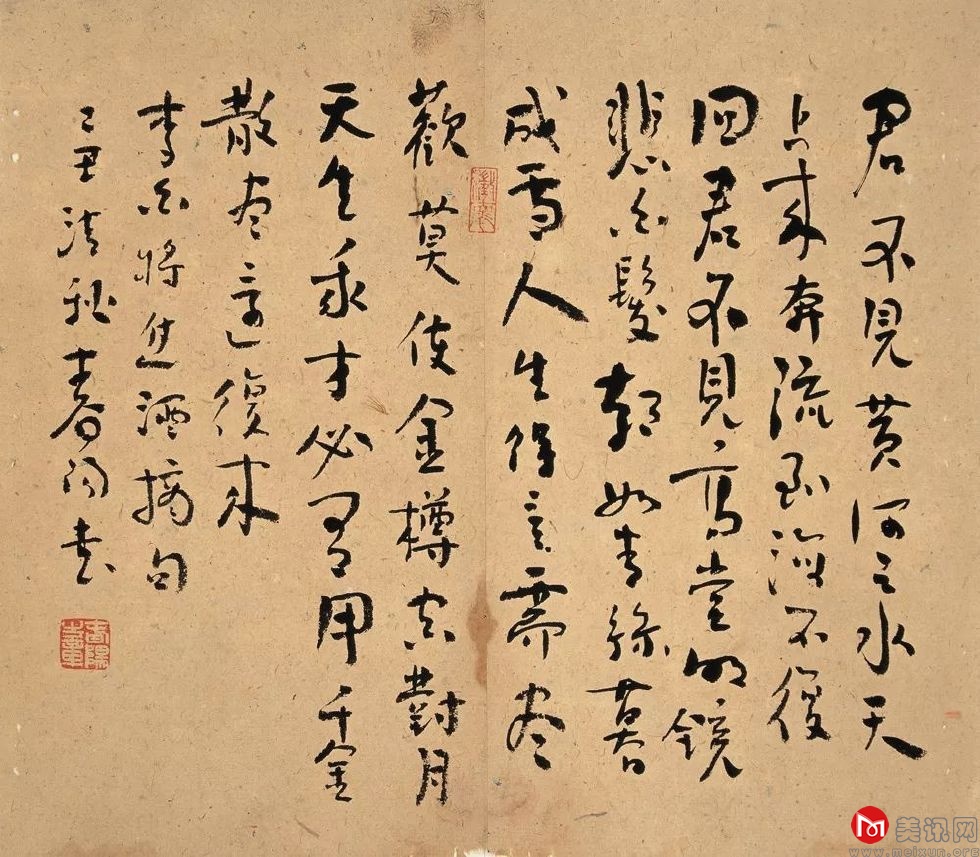 君不見黄河之水天
上来奔流到海不復
回君不見高堂明鏡
悲白髮朝如青絲暮
成雪人生得意需尽
歡莫使金樽空對月
天生我才必有用千金
散尽還復来
李白将进酒摘句
己丑清秋春阳书
美讯网
www.meixun.org